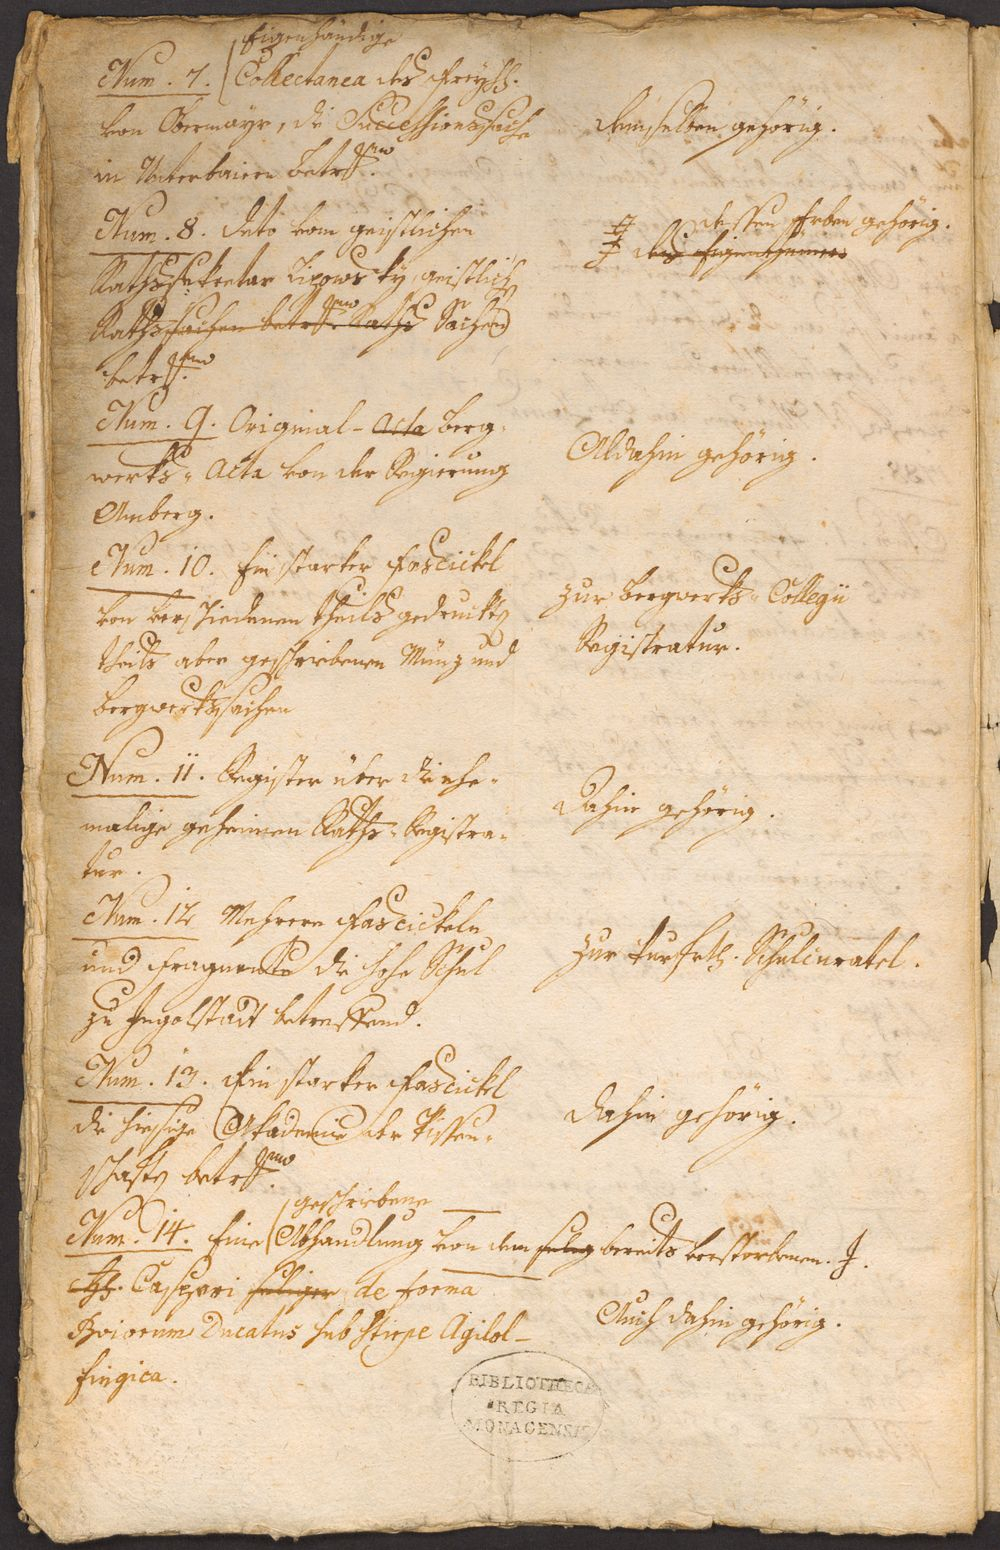 Eigenhändige
Num. 7. Collectanea des Freyhh.
von Obermayr, die Successionssache
in Unterbaiern betrffend.
demselben gehörig.
Num. 8. deto vom geistlichen
Rathssekretar Lipowsky, geistliche
Rathssachen betrffend. Raths Sachen
betrffend.
dessen Erben gehörig.
des Eigenthümers
Num. 9. Original-Acta Berg-
werks-Acta von der Regierung
Amberg.
Aldahin gehörig.
Num. 10. Ein starker Fascickel
von verschiedenen theils gedruckten
theils aber geschriebenen Münz und
Bergwerkssachen
zur Bergwerks-Collegii
Registratur.
Num. 11. Register über die ehe-
malige geheimen Raths-Registra-
tur.
Dahin gehörig.
Num. 12 Mehrere Fascickeln
und Fragmente die hohe Schul
zu Ingolstadt betreffend.
zur kurfrtl. Schulcuratel.
Num. 13. Ein starker Fascickel
die hiesige Akademie der Wissen-
schaften betrffend.
dahin gehörig.
geschriebene
Num. 14. Eine Abhandlung von dem bereits verstorbenen J.
Casparj de forma
Boiorum Ducatus sub stirpe Agilol-
fingica.
Auch dahin gehörig.
BIBLIOTHECA
REGIA
MONACENSIS